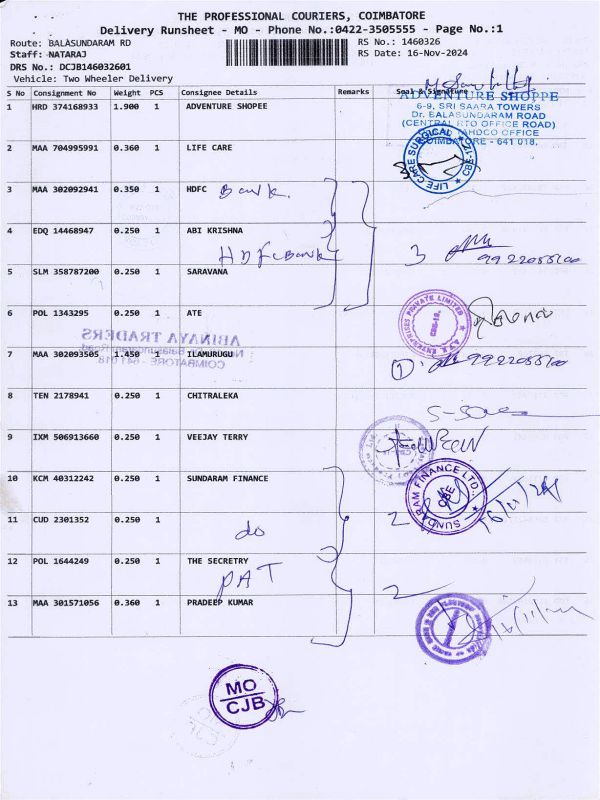 THE PROFESSIONAL COURIERS, COIMBATORE
Delivery Runsheet - MO - Phone No.:0422-3505555 - Page No.:1
Route: BALASUNDARAM RD RS No.: 1460326
Staff: NATARAJ RS Date: 16-Nov-2024
DRS No.: DCJB146032601
Vehicle: Two Wheeler Delivery
S No Consignment No Weight PCS Consignee Details Remarks Seal & Signature
1 HRD 374168933 1.900 1 ADVENTURE SHOPEE
ADVENTURE SHOPPE
6-9, SRI SAARA TOWERS
Dr. BALASUNDARAM ROAD
(CENTRAL RTO OFFICE ROAD)
TAHDCO OFFICE
COIMBATORE - 641 018.
2 MAA 704995991 0.360 1 LIFE CARE
LIFE CARE SURGICAL
CBE-12
3 MAA 302092941 0.350 1 HDFC Bank
4 EDQ 14468947 0.250 1 ABI KRISHNA
HDFC Bank 3 9922055100
5 SLM 358787200 0.250 1 SARAVANA
6 POL 1343295 0.250 1 ATE
ENTERPRISES PRIVATE LIMITED
CBE-18.
ABINAYA TRADERS
COIMBATORE - 641 018
7 MAA 302093505 1.450 1 ILAMURUGU
1 9922055100
8 TEN 2178941 0.250 1 CHITRALEKA
9 IXM 506913660 0.250 1 VEEJAY TERRY
10 KCM 40312242 0.250 1 SUNDARAM FINANCE
SUNDARAM FINANCE LTD.
CBE
2
11 CUD 2301352 0.250 1
do
12 POL 1644249 0.250 1 THE SECRETRY
PAT 2
13 MAA 301571056 0.360 1 PRADEEP KUMAR
MO
CJB